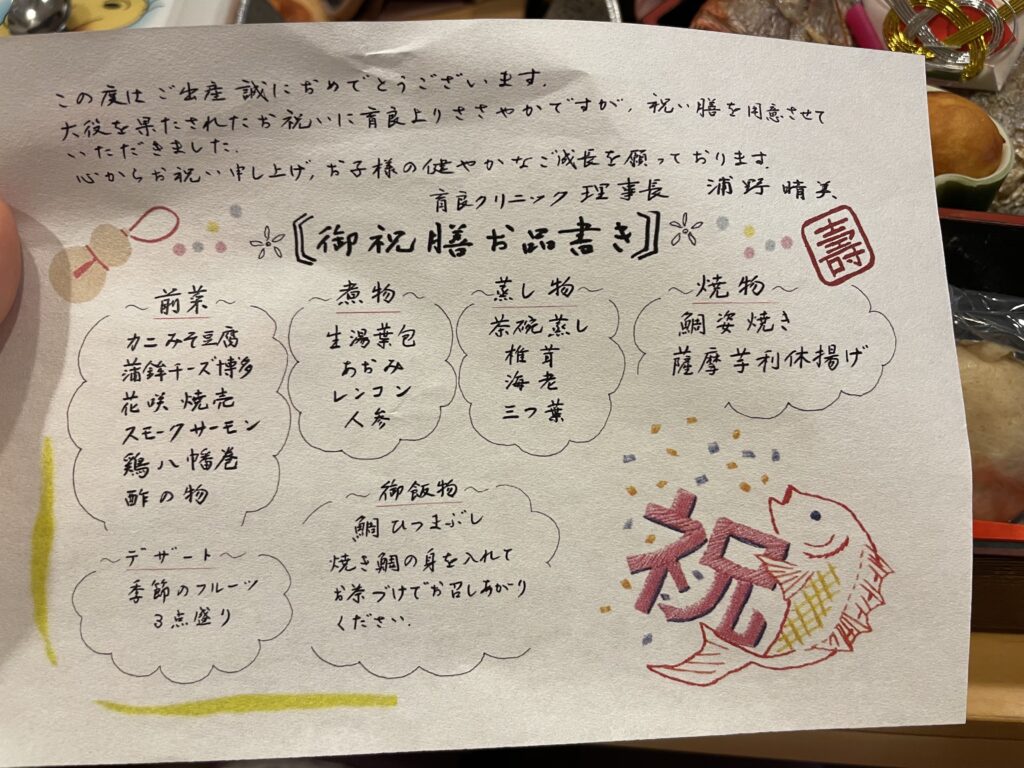 この度はご出産誠におめでとうございます.
大役を果たされたお祝いに育良よりささやかですが、祝い膳を用意させて
いただきました.
心からお祝い申し上げ、お子様の健やかなご成長を願っております.
育良クリニック 理事長 浦野晴美
【御祝膳お品書き】
壽
~前菜~
カニみそ豆腐
蒲鉾チーズ博多
花咲焼売
スモークサーモン
鶏八幡巻
酢の物
~煮物~
生湯葉包
あおみ
レンコン
人参
~蒸し物~
茶碗蒸し
椎茸
海老
三つ葉
~焼物~
鯛姿焼き
薩摩芋利休揚げ
~デザート~
季節のフルーツ
3点盛り
~御飯物~
鯛ひつまぶし
焼き鯛の身を入れて
お茶づけでお召しあがり
ください.
祝